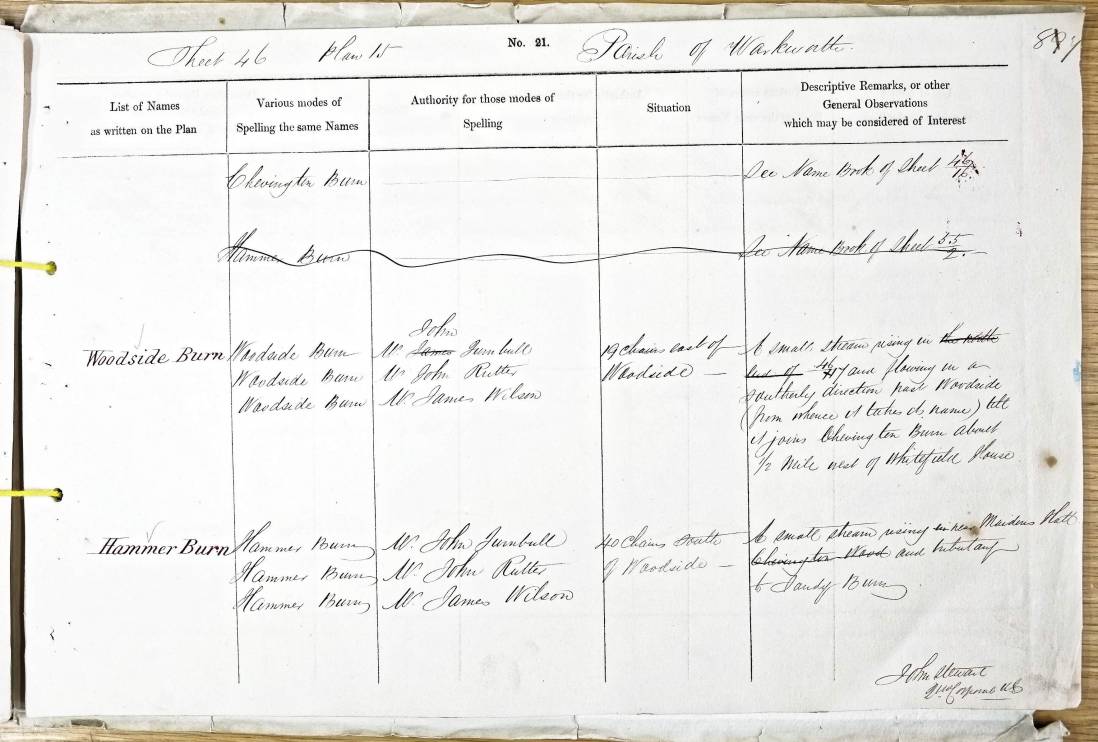 Sheet 46 Plan 15 No. 21. Parish of Warkworth. 87
List of Names
as written on the Plan
Various modes of
Spelling the same Names
Authority for those modes of
Spelling
Situation
Descriptive Remarks, or other
General Observations
which may be considered of Interest
Chevington Burn See Name Book of Sheet 46/16.
Hammer Burn See Name Book of Sheet 55/2.
John
Woodside Burn Woodside Burn Mr. James Turnbull 19 chains east of A small stream rising in the north
Woodside Burn Mr. John Rutter Woodside — end of 46/11 and flowing in a
Woodside Burn Mr. James Wilson southerly direction past Woodside
(from whence it takes its name) till
it joins Chevington Burn about
1/2 Mile west of Whitefield House
Hammer Burn Hammer Burn Mr. John Turnbull 40 Chains South A small stream rising in near Maidens Hall
Hammer Burn Mr. John Rutter of Woodside — Chevington Wood and tributary
Hammer Burn Mr. James Wilson to Sandy Burn
John Stewart
2nd Corporal RE